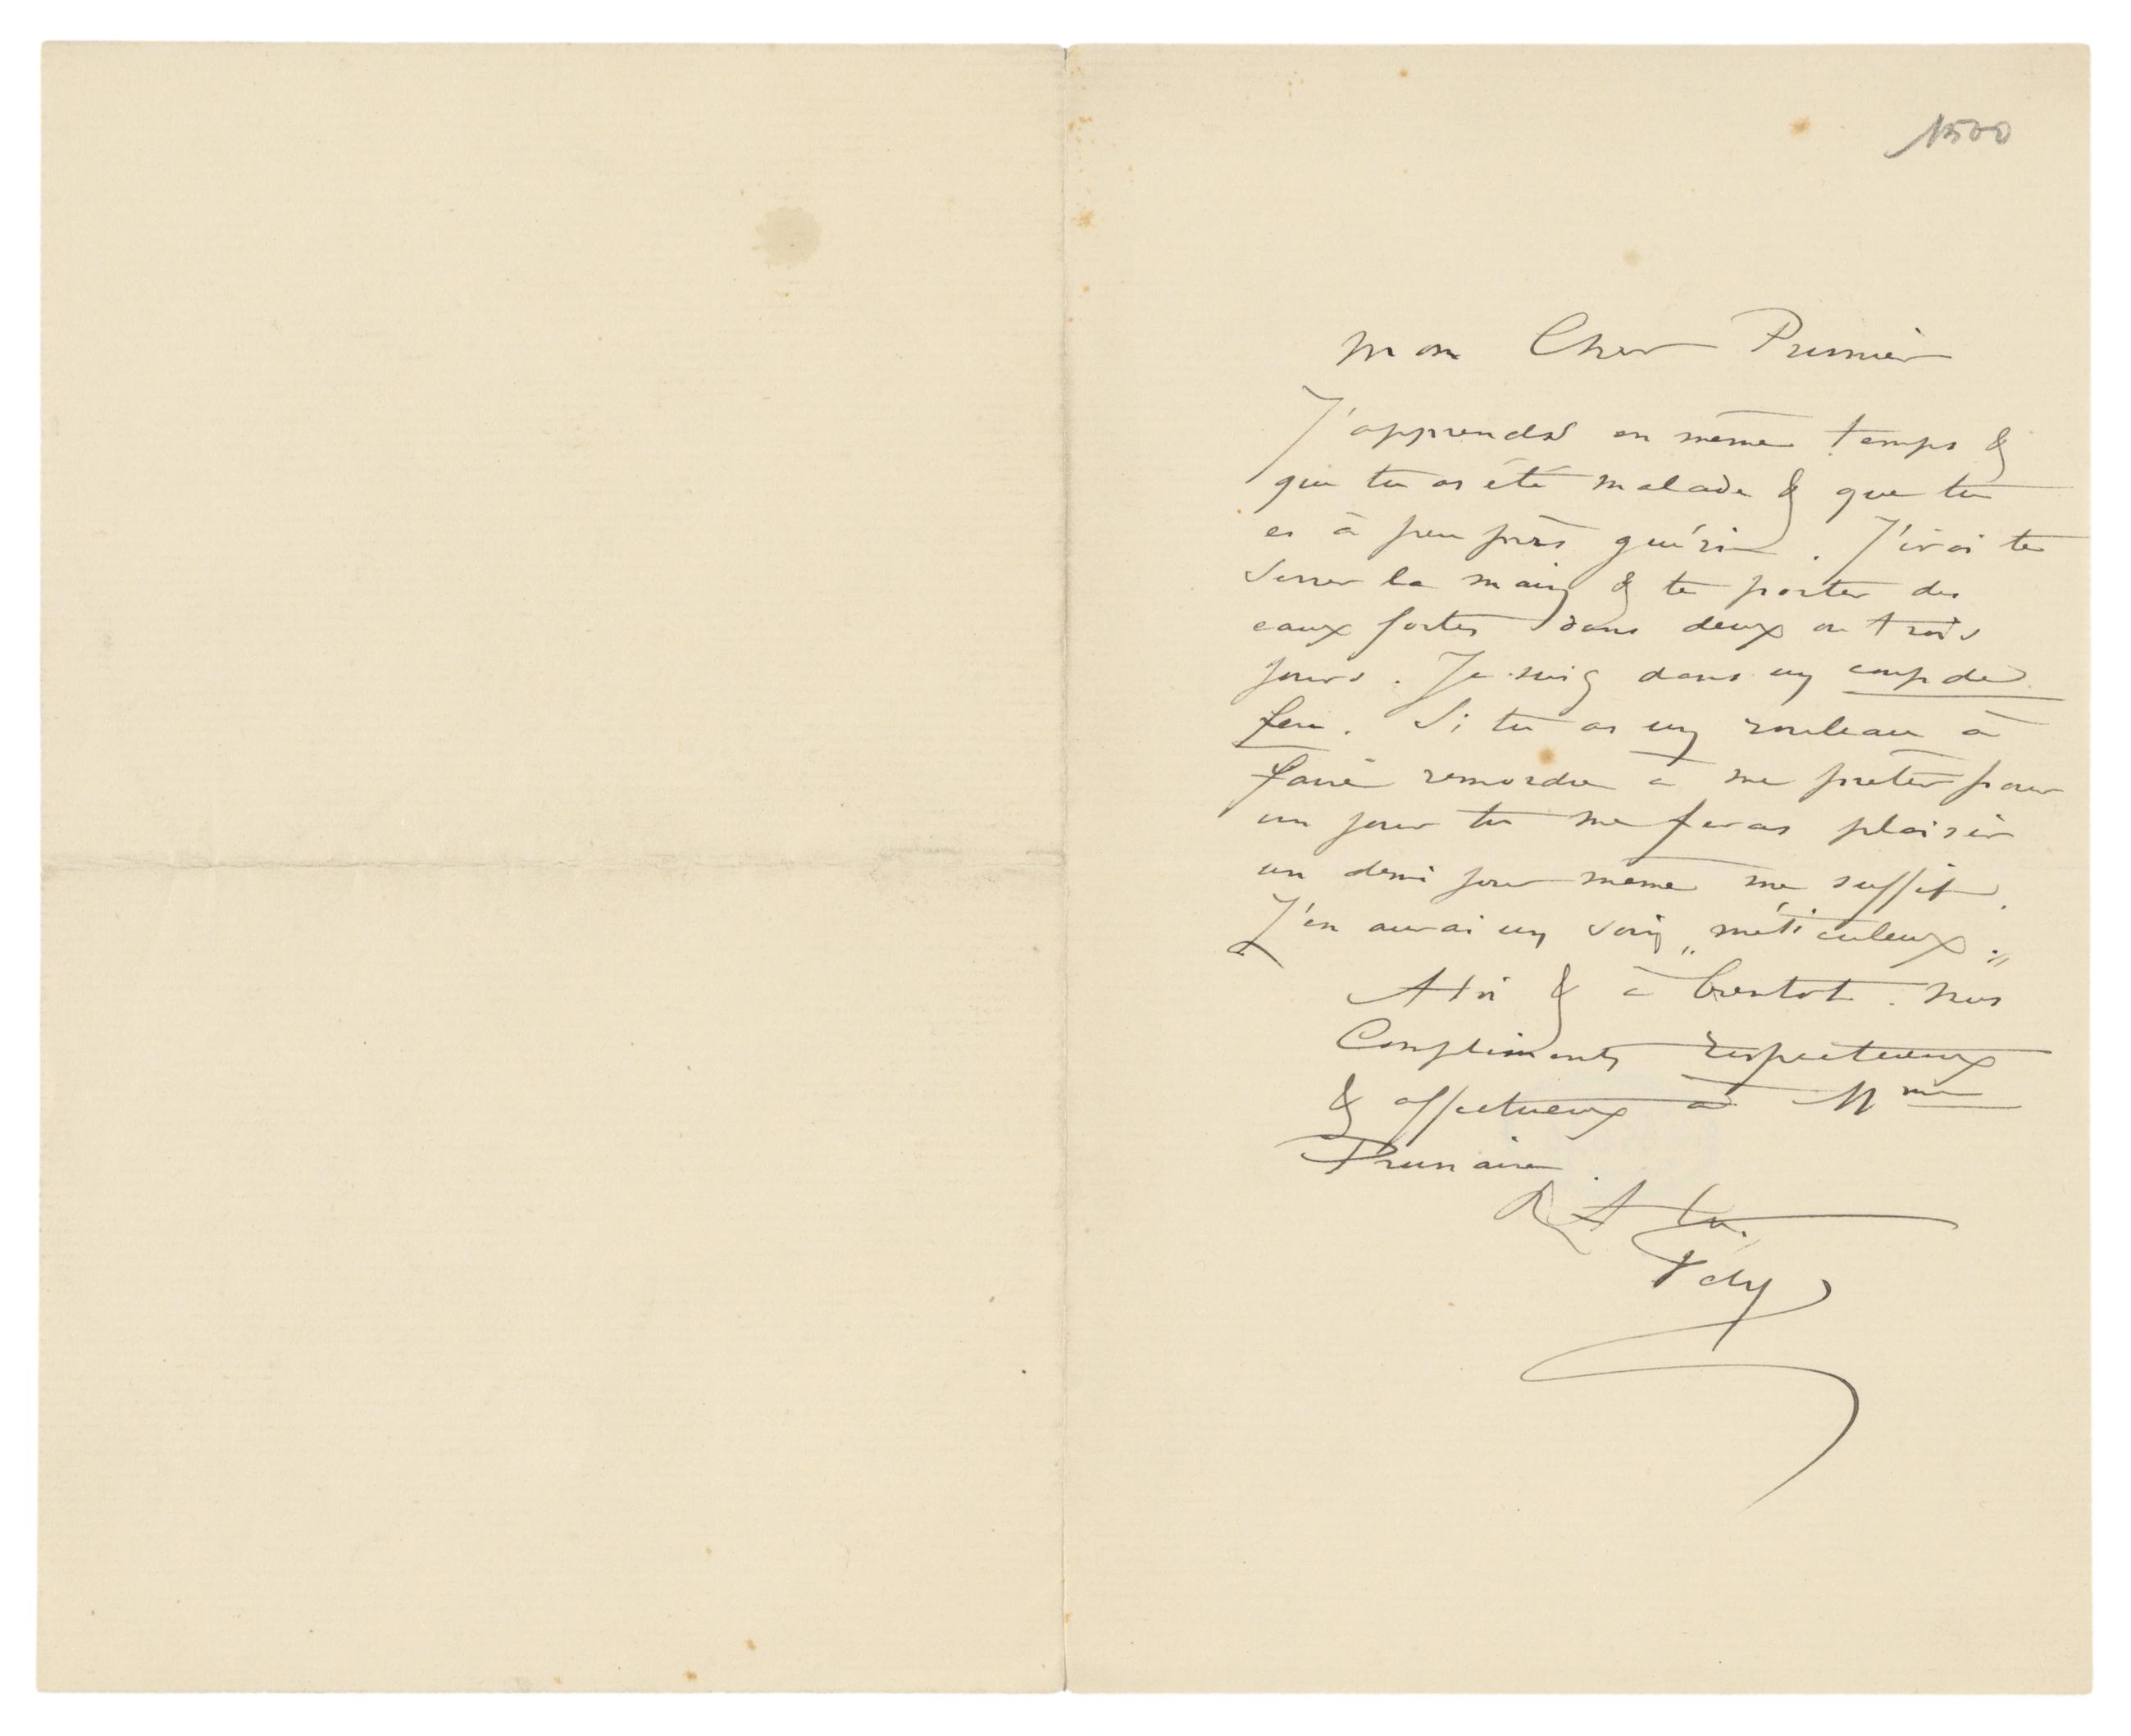 1500
mon Cher Prunier
J'apprends en même temps &
que tu as été malade & que tu
es à peu près guéri. J'irai te
serrer la main & te porter des
eaux fortes dans deux ou trois
jours. Je suis dans un coup de
feu. Si tu as un rouleau à
faire remordre à me prêter pour
un jour tu me feras plaisir
un demi jour même me suffit.
J'en aurai un soin „méticuleux„.
A toi & à bientot. nos
Compliments respectueux
& affectueux à Mme
Prunaire.
A toi